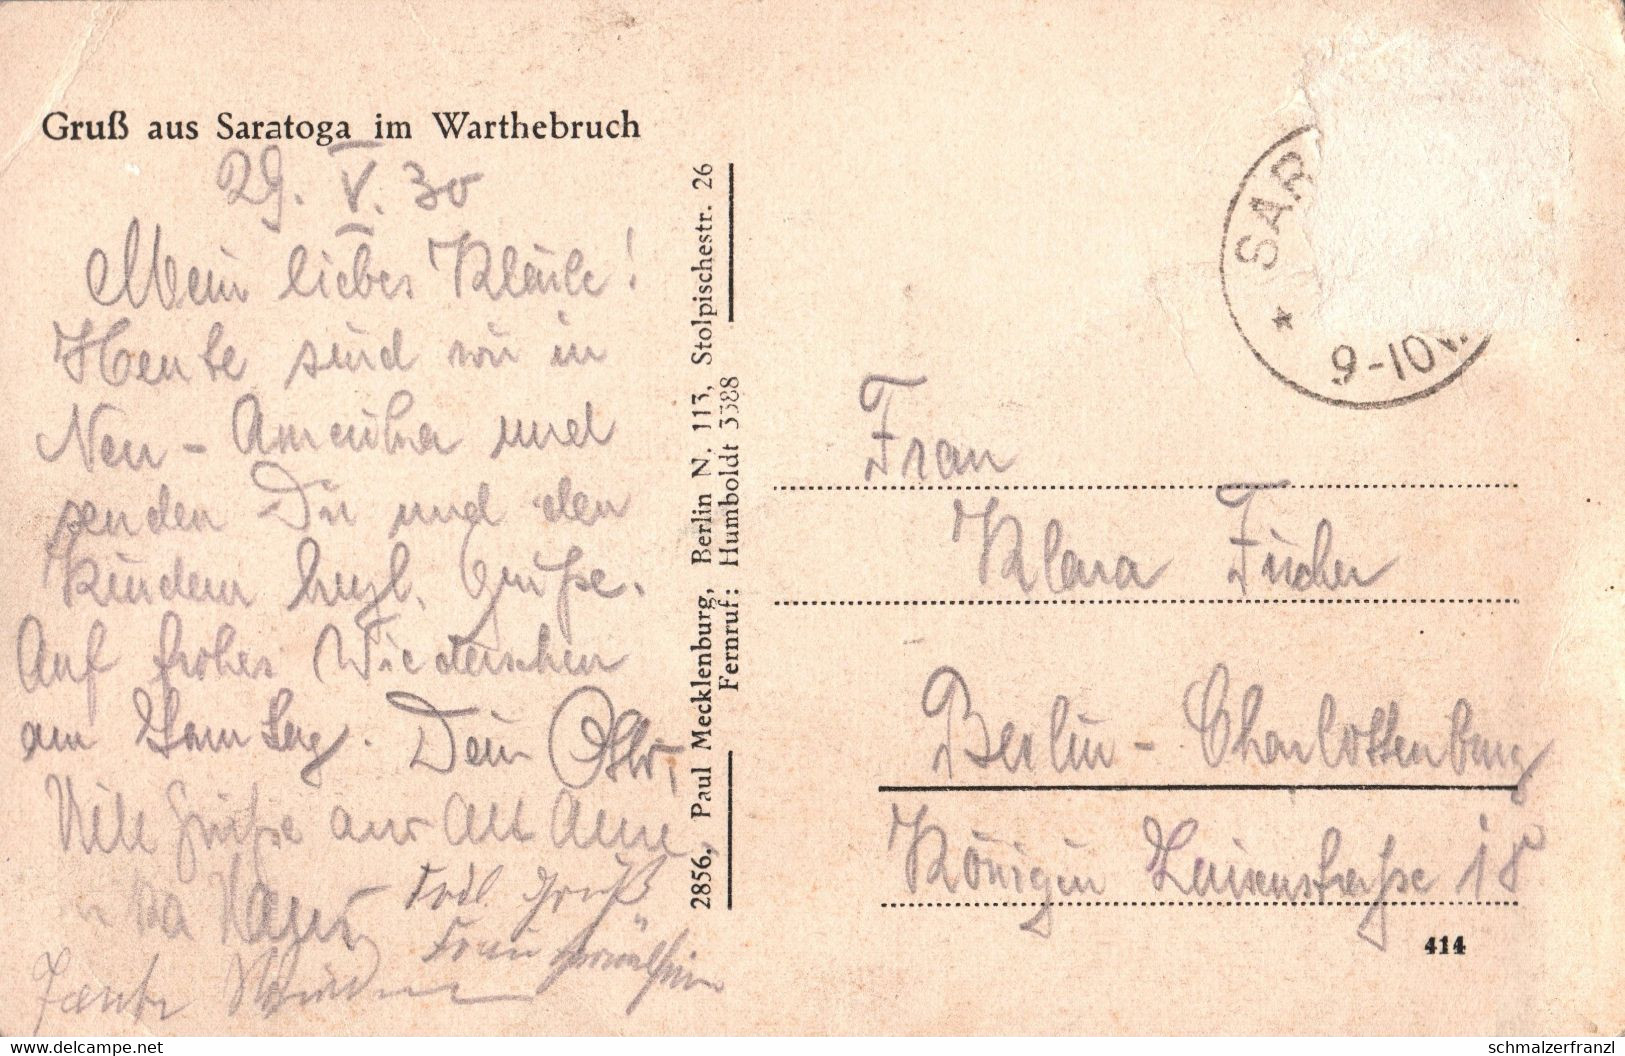 Gruß aus Saratoga im Warthebruch
29. V. 30
Mein liebes Klärle!
Heute sind wir in
Neu-Amerika und
senden Dir und den
Kindern herzl. Grüße.
Auf frohes Wiedersehen
am Samstag. Dein Otto,
Viele Grüße aus Alt Ame
Hans
Frdl. Gruß
Frau
Tante
2856. Paul Mecklenburg, Berlin N. 113, Stolpischestr. 26
Fernruf: Humboldt 3388
SAR
9-10V.
Frau
Klara Fischer
Berlin-Charlottenburg
Königin Luisenstraße 18
414
www.delcampe.net
schmalzerfranzl